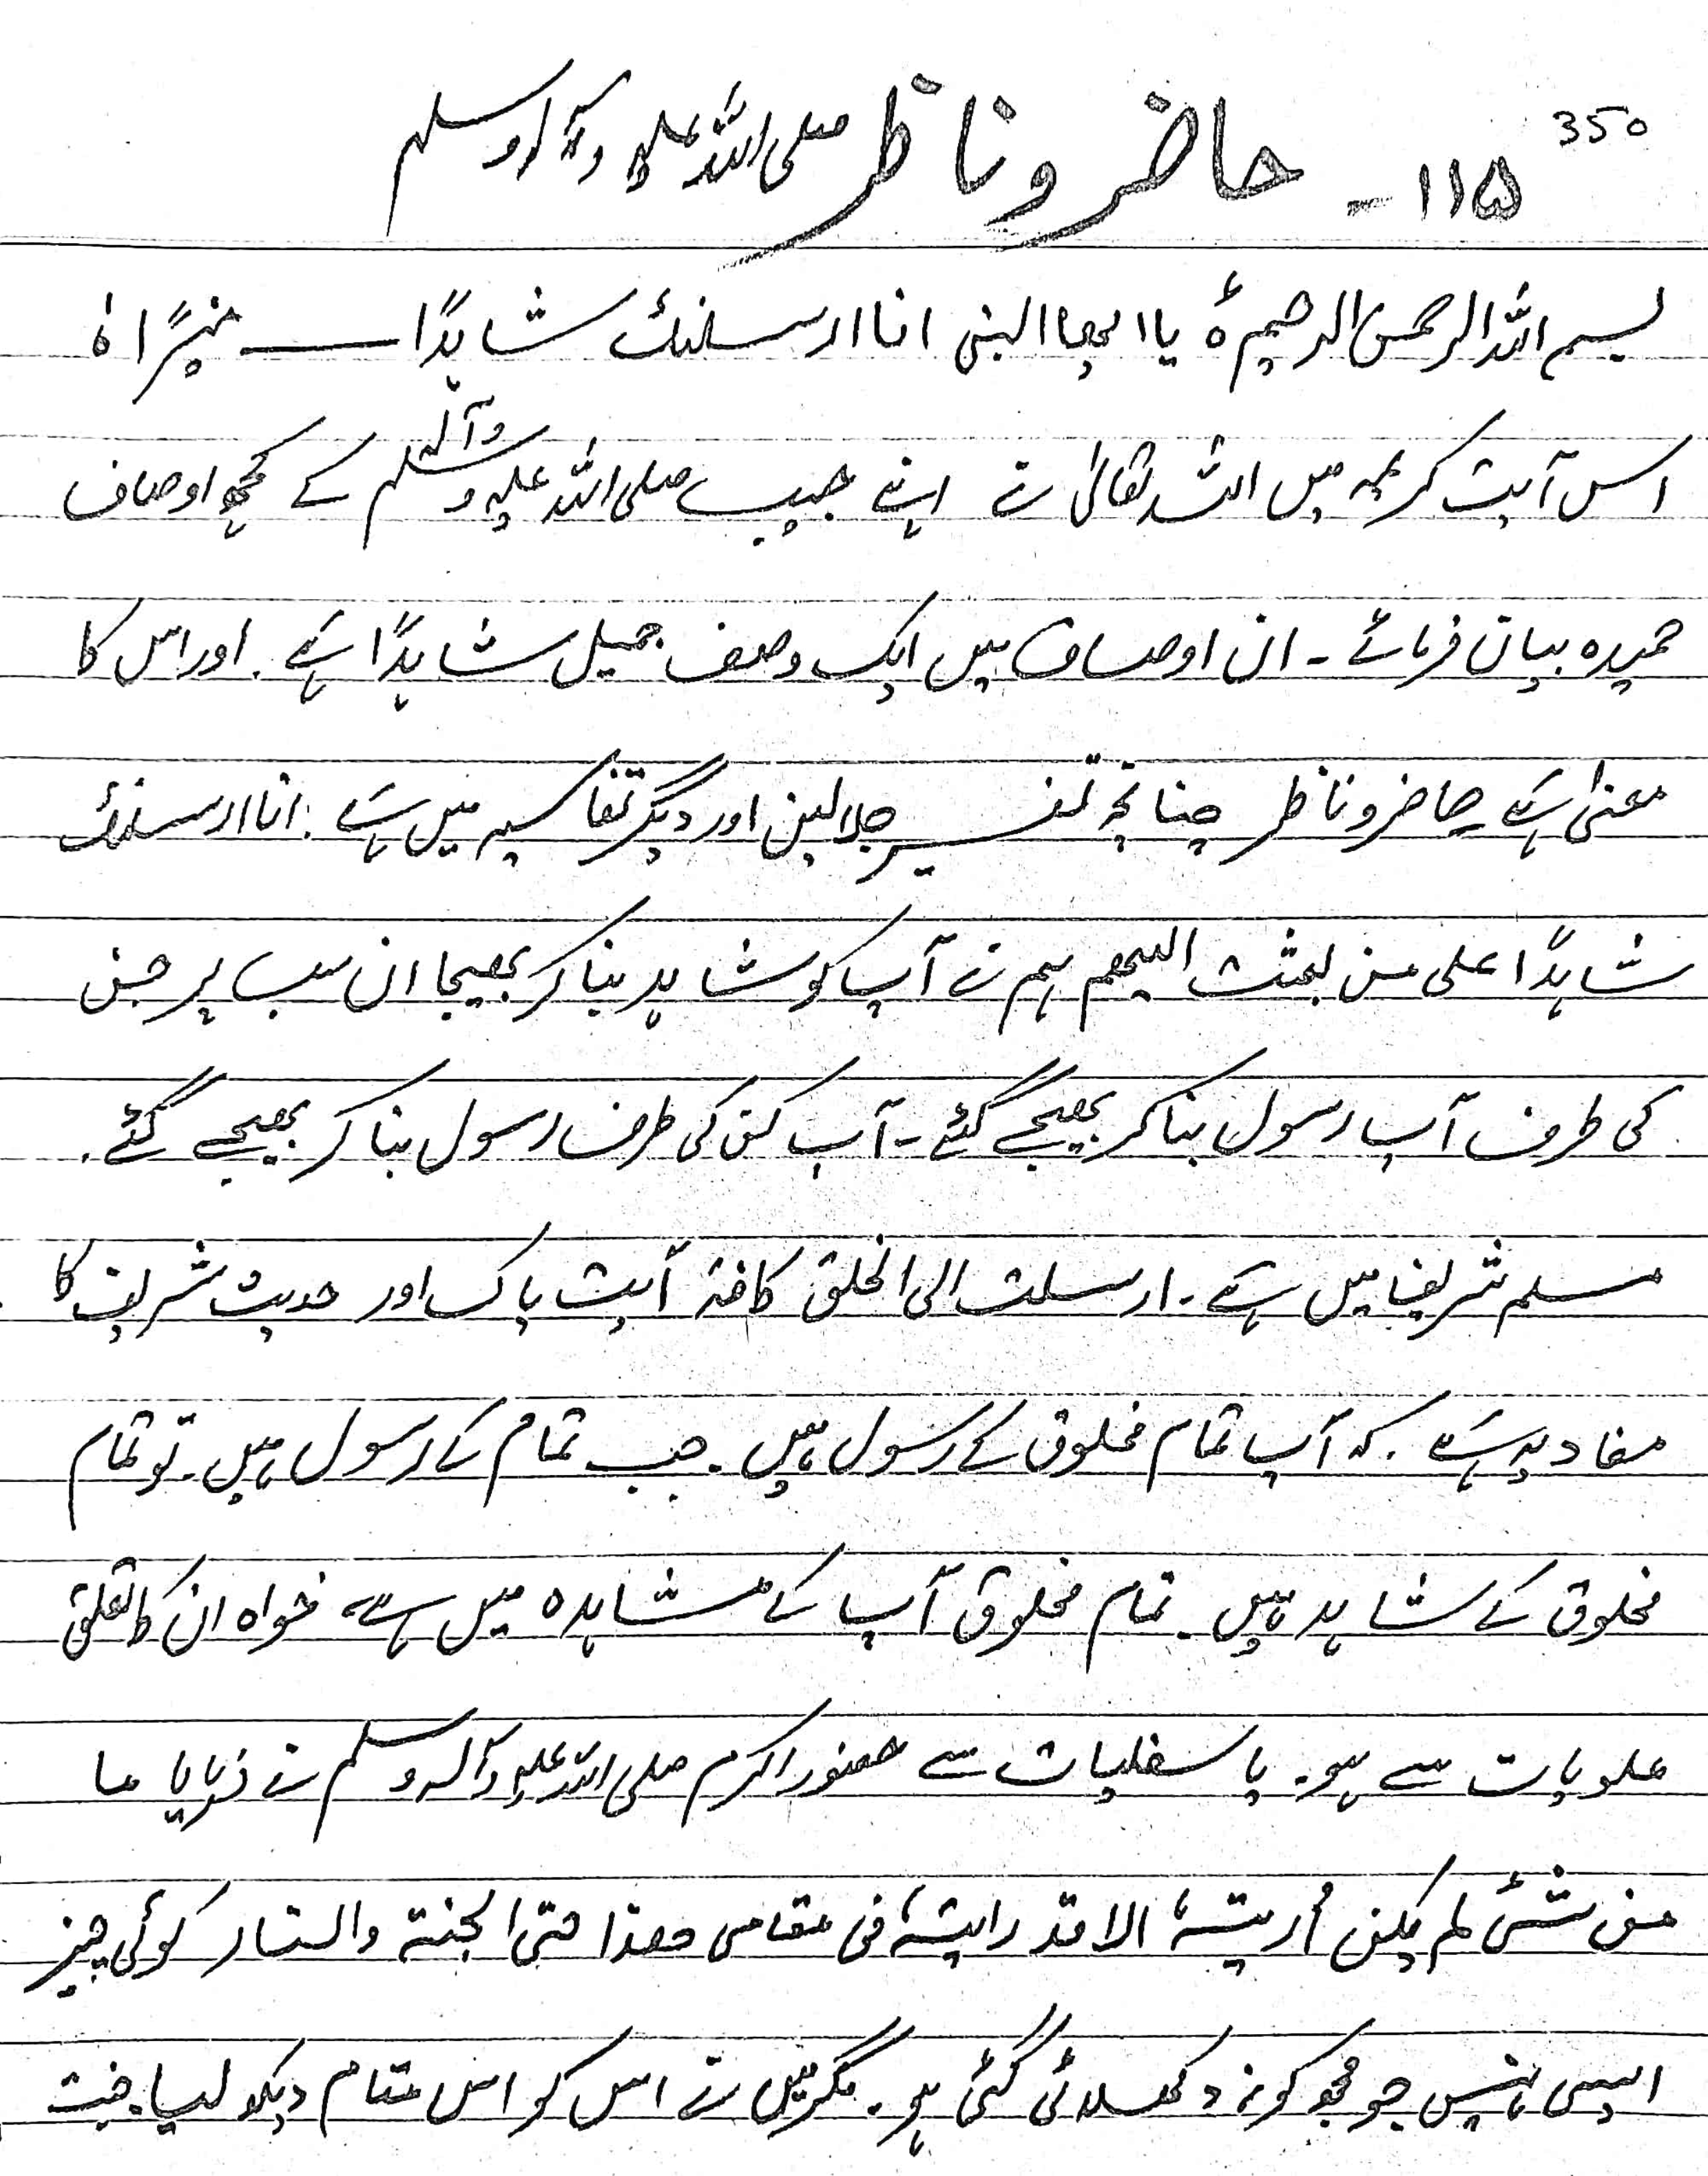 350
۱۱۵ - حاضر و ناظر صلی اللہ علیہ وآلہ وسلم
بسم اللہ الرحمن الرحیم ہ یا ایھا النبی انا ارسلنٰک شاہدًا ——— منیرًا ہ
اس آیت کریمہ میں اللہ تعالیٰ نے اپنے حبیب صلی اللہ علیہ وآلہ وسلم کے کچھ اوصاف
حمیدہ بیان فرمائے ۔ ان اوصاف میں ایک وصف جمیل شاہدًا ہے . اور اس کا
معنیٰ ہے حاضر و ناظر چنانچہ تفسیر جلالین اور دیگر تفاسیر میں ہے : انا ارسلنٰک
شاہدًا علی من بعثت الیھم ہم نے آپ کو شاہد بنا کر بھیجا ان سب پر جن
کی طرف آپ رسول بنا کر بھیجے گئے ۔ آپ کن کی طرف رسول بنا کر بھیجے گئے .
مسلم شریف میں ہے . ارسلت الی الخلق کافۃ آیت پاک اور حدیث شریف کا
مفاد یہ ہے . کہ آپ تمام مخلوق کے رسول ہیں . جب تمام کے رسول ہیں . تو تمام
مخلوق کے شاہد ہیں . تمام مخلوق آپ کے مشاہدہ میں ہے ، خواہ ان کا تعلق
علویات سے ہو . یا سفلیات سے حضور اکرم صلی اللہ علیہ وآلہ وسلم نے فرمایا ما
من شئی لم یکن اُریتہٗ الا قد رایتہٗ فی مقامی ھذا حتی الجنۃ والنار کوئی چیز
ایسی نہیں جو مجھ کو نہ دکھلائی گئی ہو . مگر میں نے اس کو اس مقام دیکھ لیا . جنت